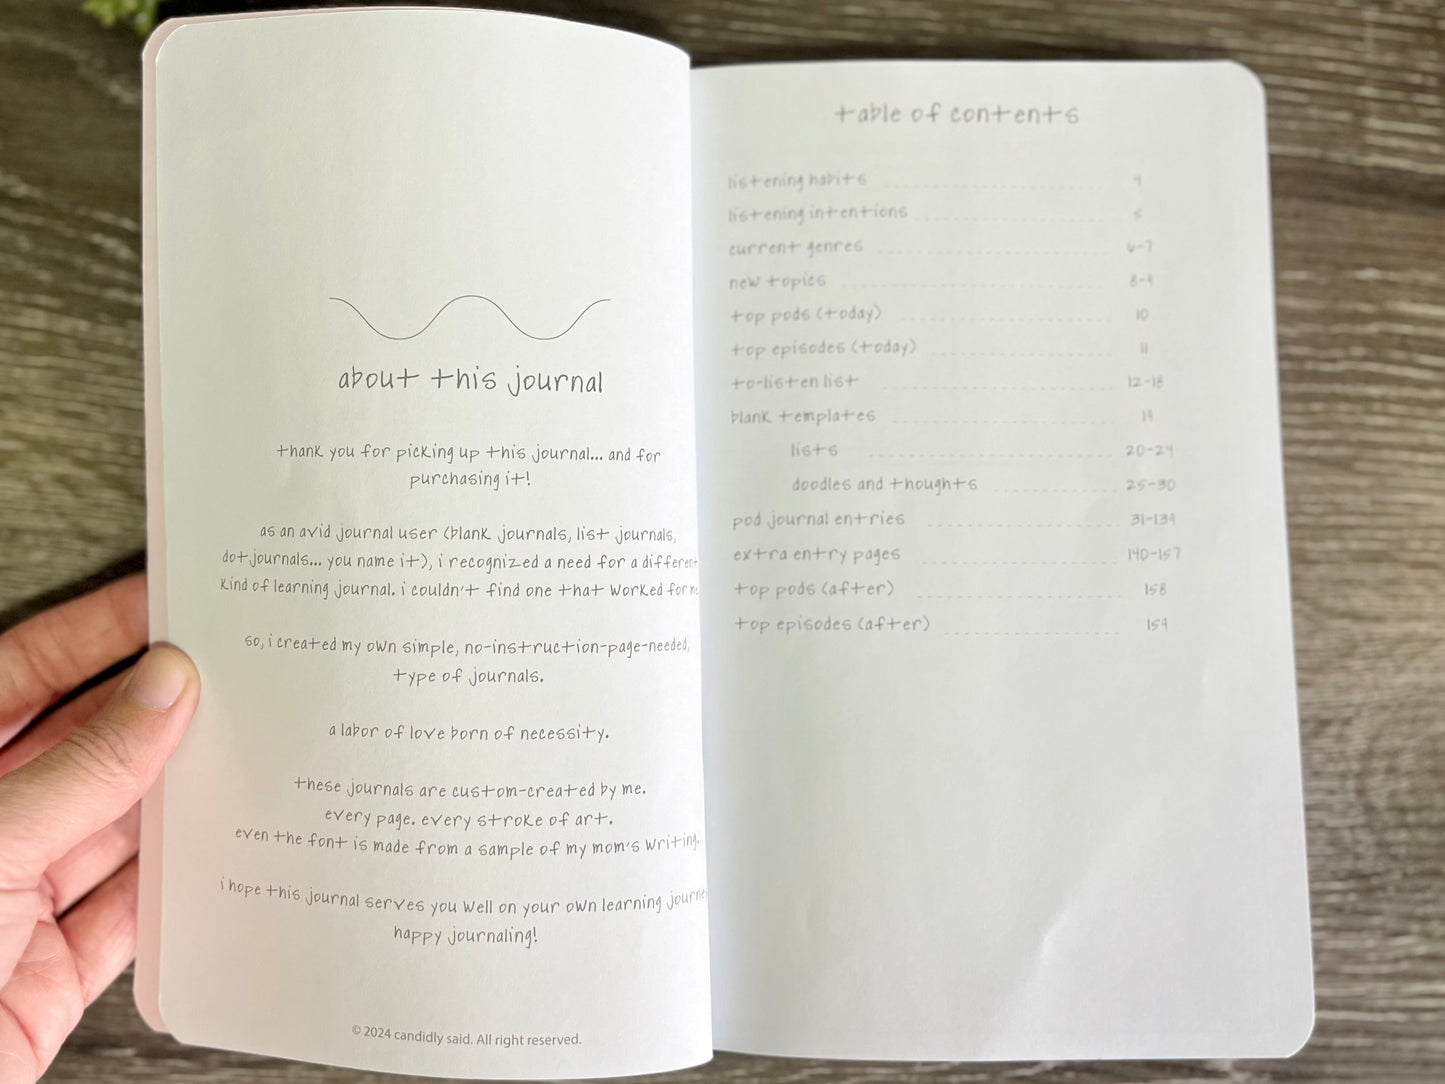 about this journal
thank you for picking up this journal... and for
purchasing it!
as an avid journal user (blank journals, list journals,
dot journals... you name it), i recognized a need for a different
kind of learning journal. i couldn't find one that worked for me
so, i created my own simple, no-instruction-page-needed,
type of journals.
a labor of love born of necessity.
these journals are custom-created by me.
every page. every stroke of art.
even the font is made from a sample of my mom's writing.
i hope this journal serves you well on your own learning
happy journaling!
© 2024 candidly said. All right reserved.
table of contents
listening habits 4
listening intentions 5
current genres 6-7
new topics 8-9
top pods (today) 10
top episodes (today) 11
to-listen list 12-18
blank templates 19
lists 20-24
doodles and thoughts 25-30
pod journal entries 31-139
extra entry pages 140-157
top pods (after) 158
top episodes (after) 159